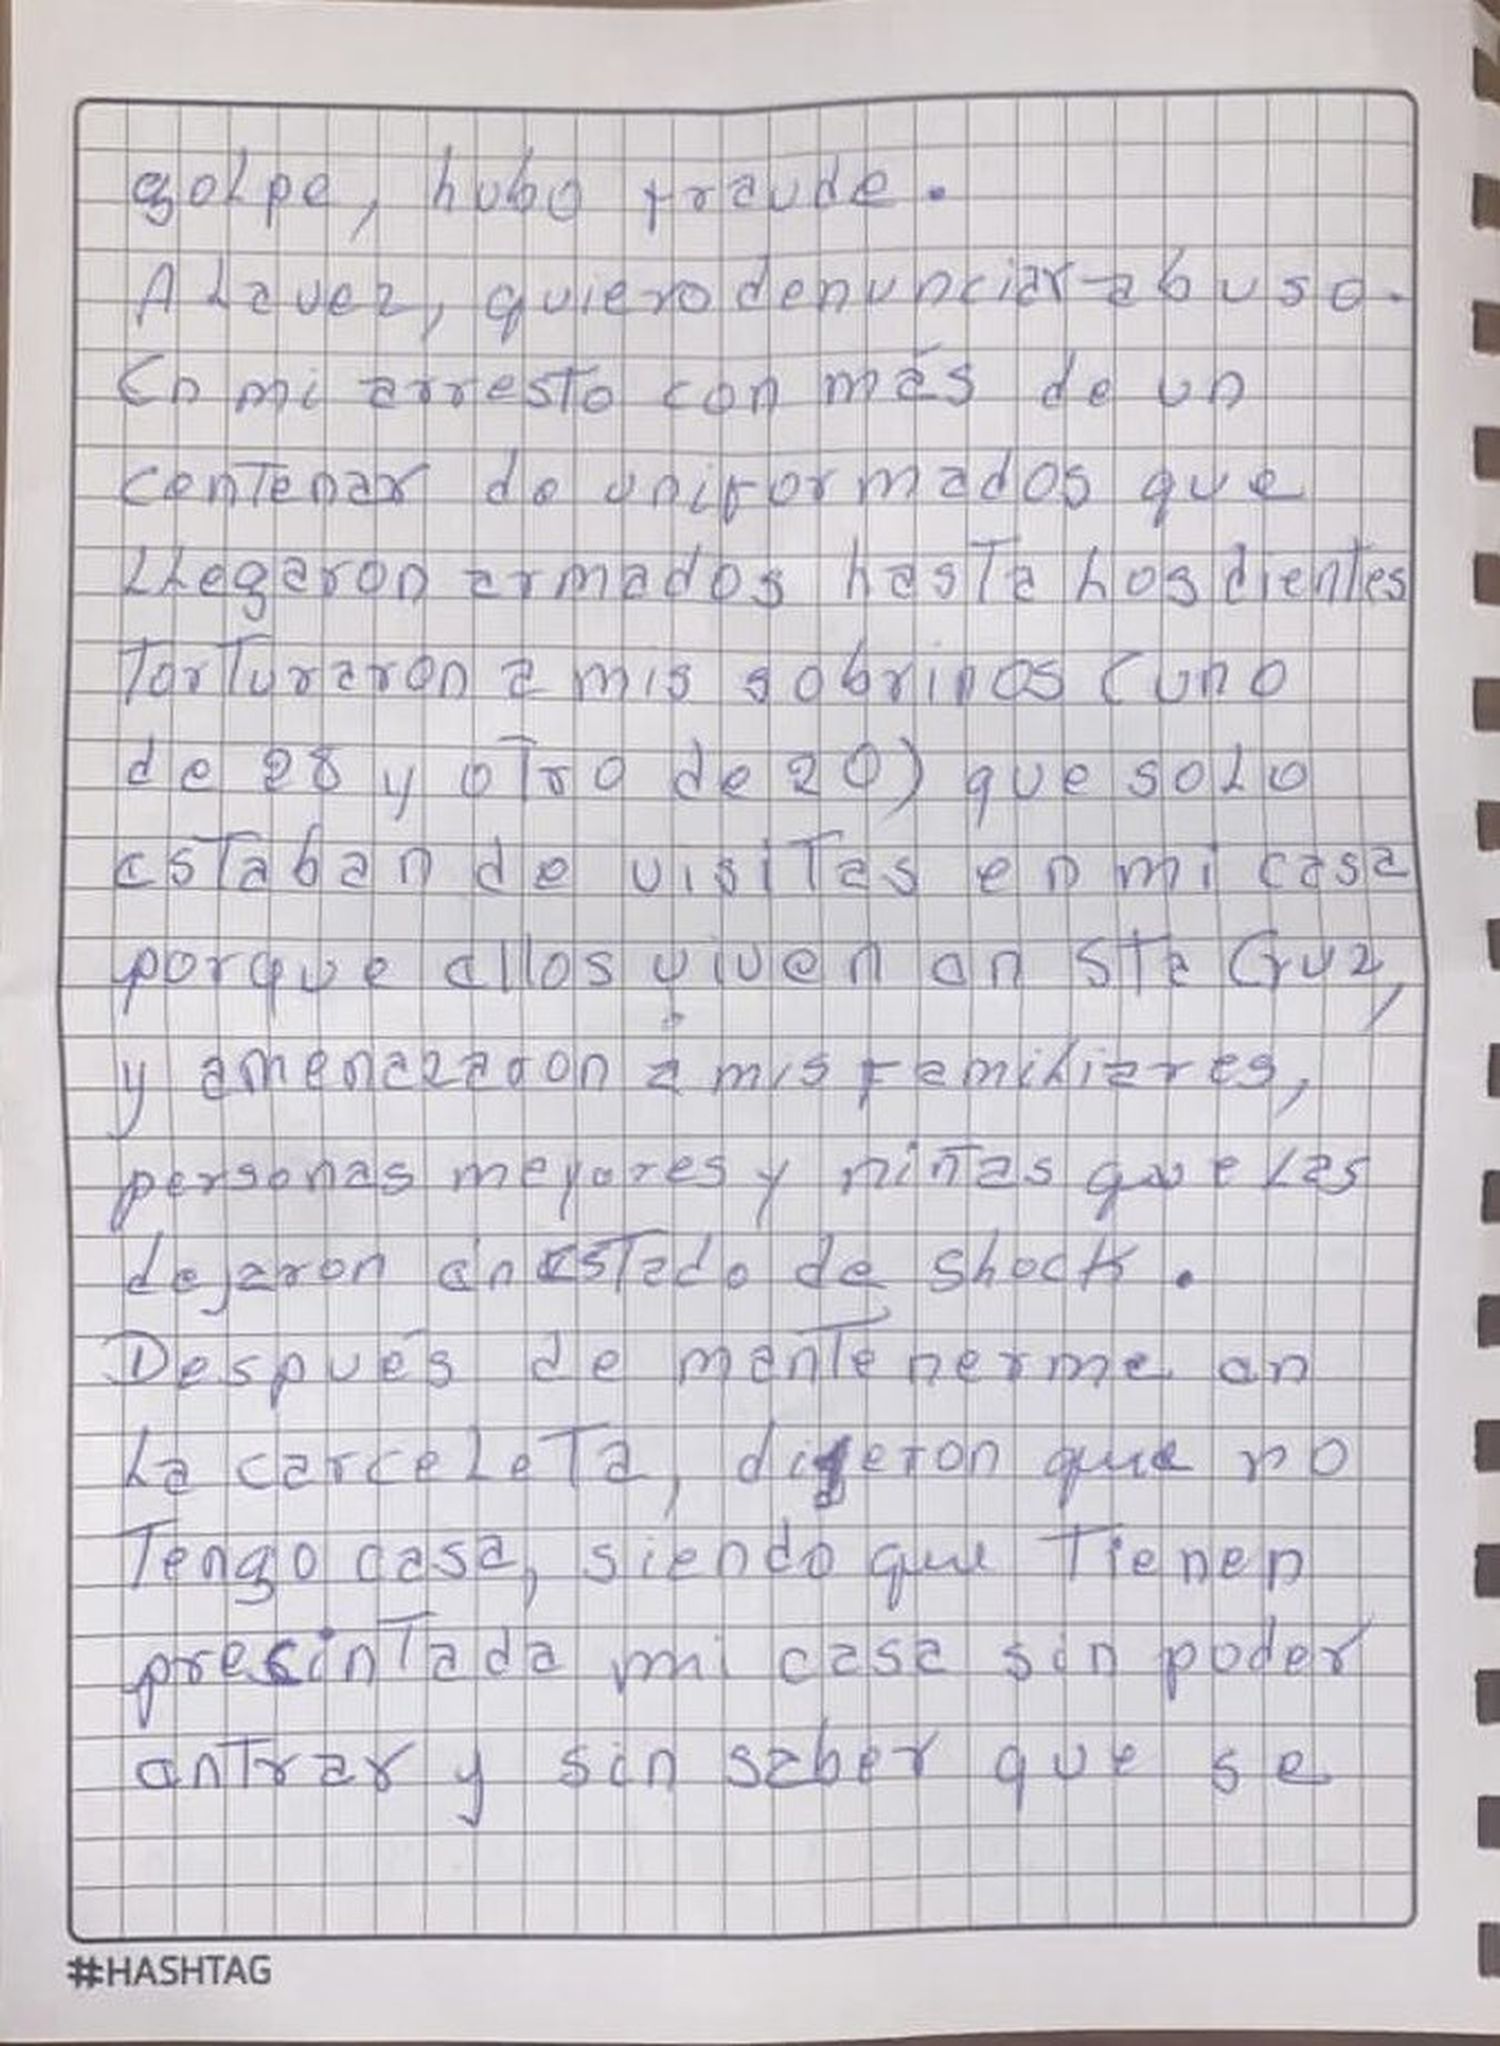 golpe, hubo fraude.
A la vez, quiero denunciar abuso.
En mi arresto con más de un
centenar de uniformados que
llegaron armados hasta los dientes
torturaron a mis sobrinos (uno
de 28 y otro de 20) que solo
estaban de visitas en mi casa
porque ellos viven en Sta Cruz,
y amenazaron a mis familiares,
personas mayores y niñas que las
dejaron en estado de shock.
Después de mantenerme en
la carceleta, dijeron que no
tengo casa, siendo que tienen
presintada mi casa sin poder
entrar y sin saber que se
#HASHTAG